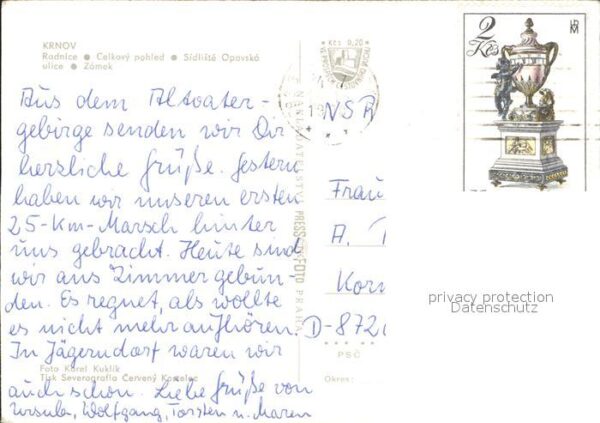 KRNOV
Radnice ● Celkový pohled ● Sídliště Opavská
ulice ● Zámek
Kčs 0,20
Aus dem Altvater-
gebirge senden wir Dir
herzliche Grüße. Gestern
haben wir unseren ersten
25-Km-Marsch hinter
uns gebracht. Heute sind
wir ans Zimmer gebun-
den. Es regnet, als wollte
es nicht mehr aufhören.
In Jägerndorf waren wir
auch schon. Liebe Grüße von
Ursula, Wolfgang, Torsten u. Maren
Foto Karel Kuklík
Tisk Severografia Červený Kostelec
PRESSFOTO PRAHA
2
Kčs
NSR
Frau
A.
Korn
D-872
PSČ
Okres:
privacy protection
Datenschutz